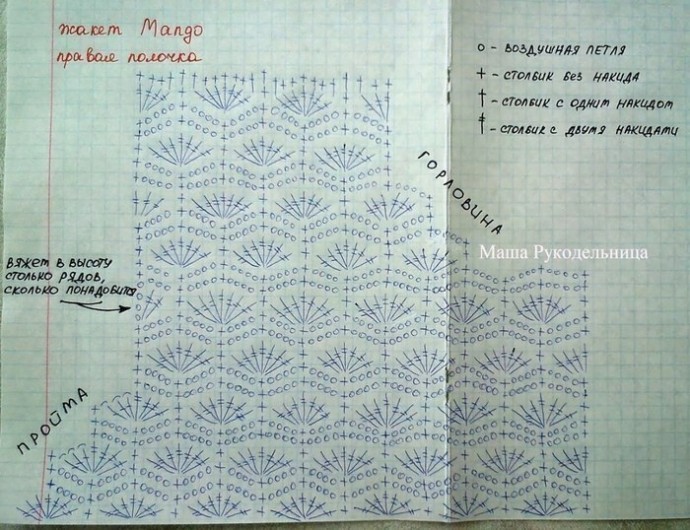 жакет Манго
правая полочка
o - ВОЗДУШНАЯ ПЕТЛЯ
+ - СТОЛБИК БЕЗ НАКИДА
† - СТОЛБИК С ОДНИМ НАКИДОМ
ǂ - СТОЛБИК С ДВУМЯ НАКИДАМИ
ГОРЛОВИНА
Маша Рукодельница
ВЯЖЕМ В ВЫСОТУ
СТОЛЬКО РЯДОВ,
СКОЛЬКО ПОНАДОБИТСЯ
ПРОЙМА